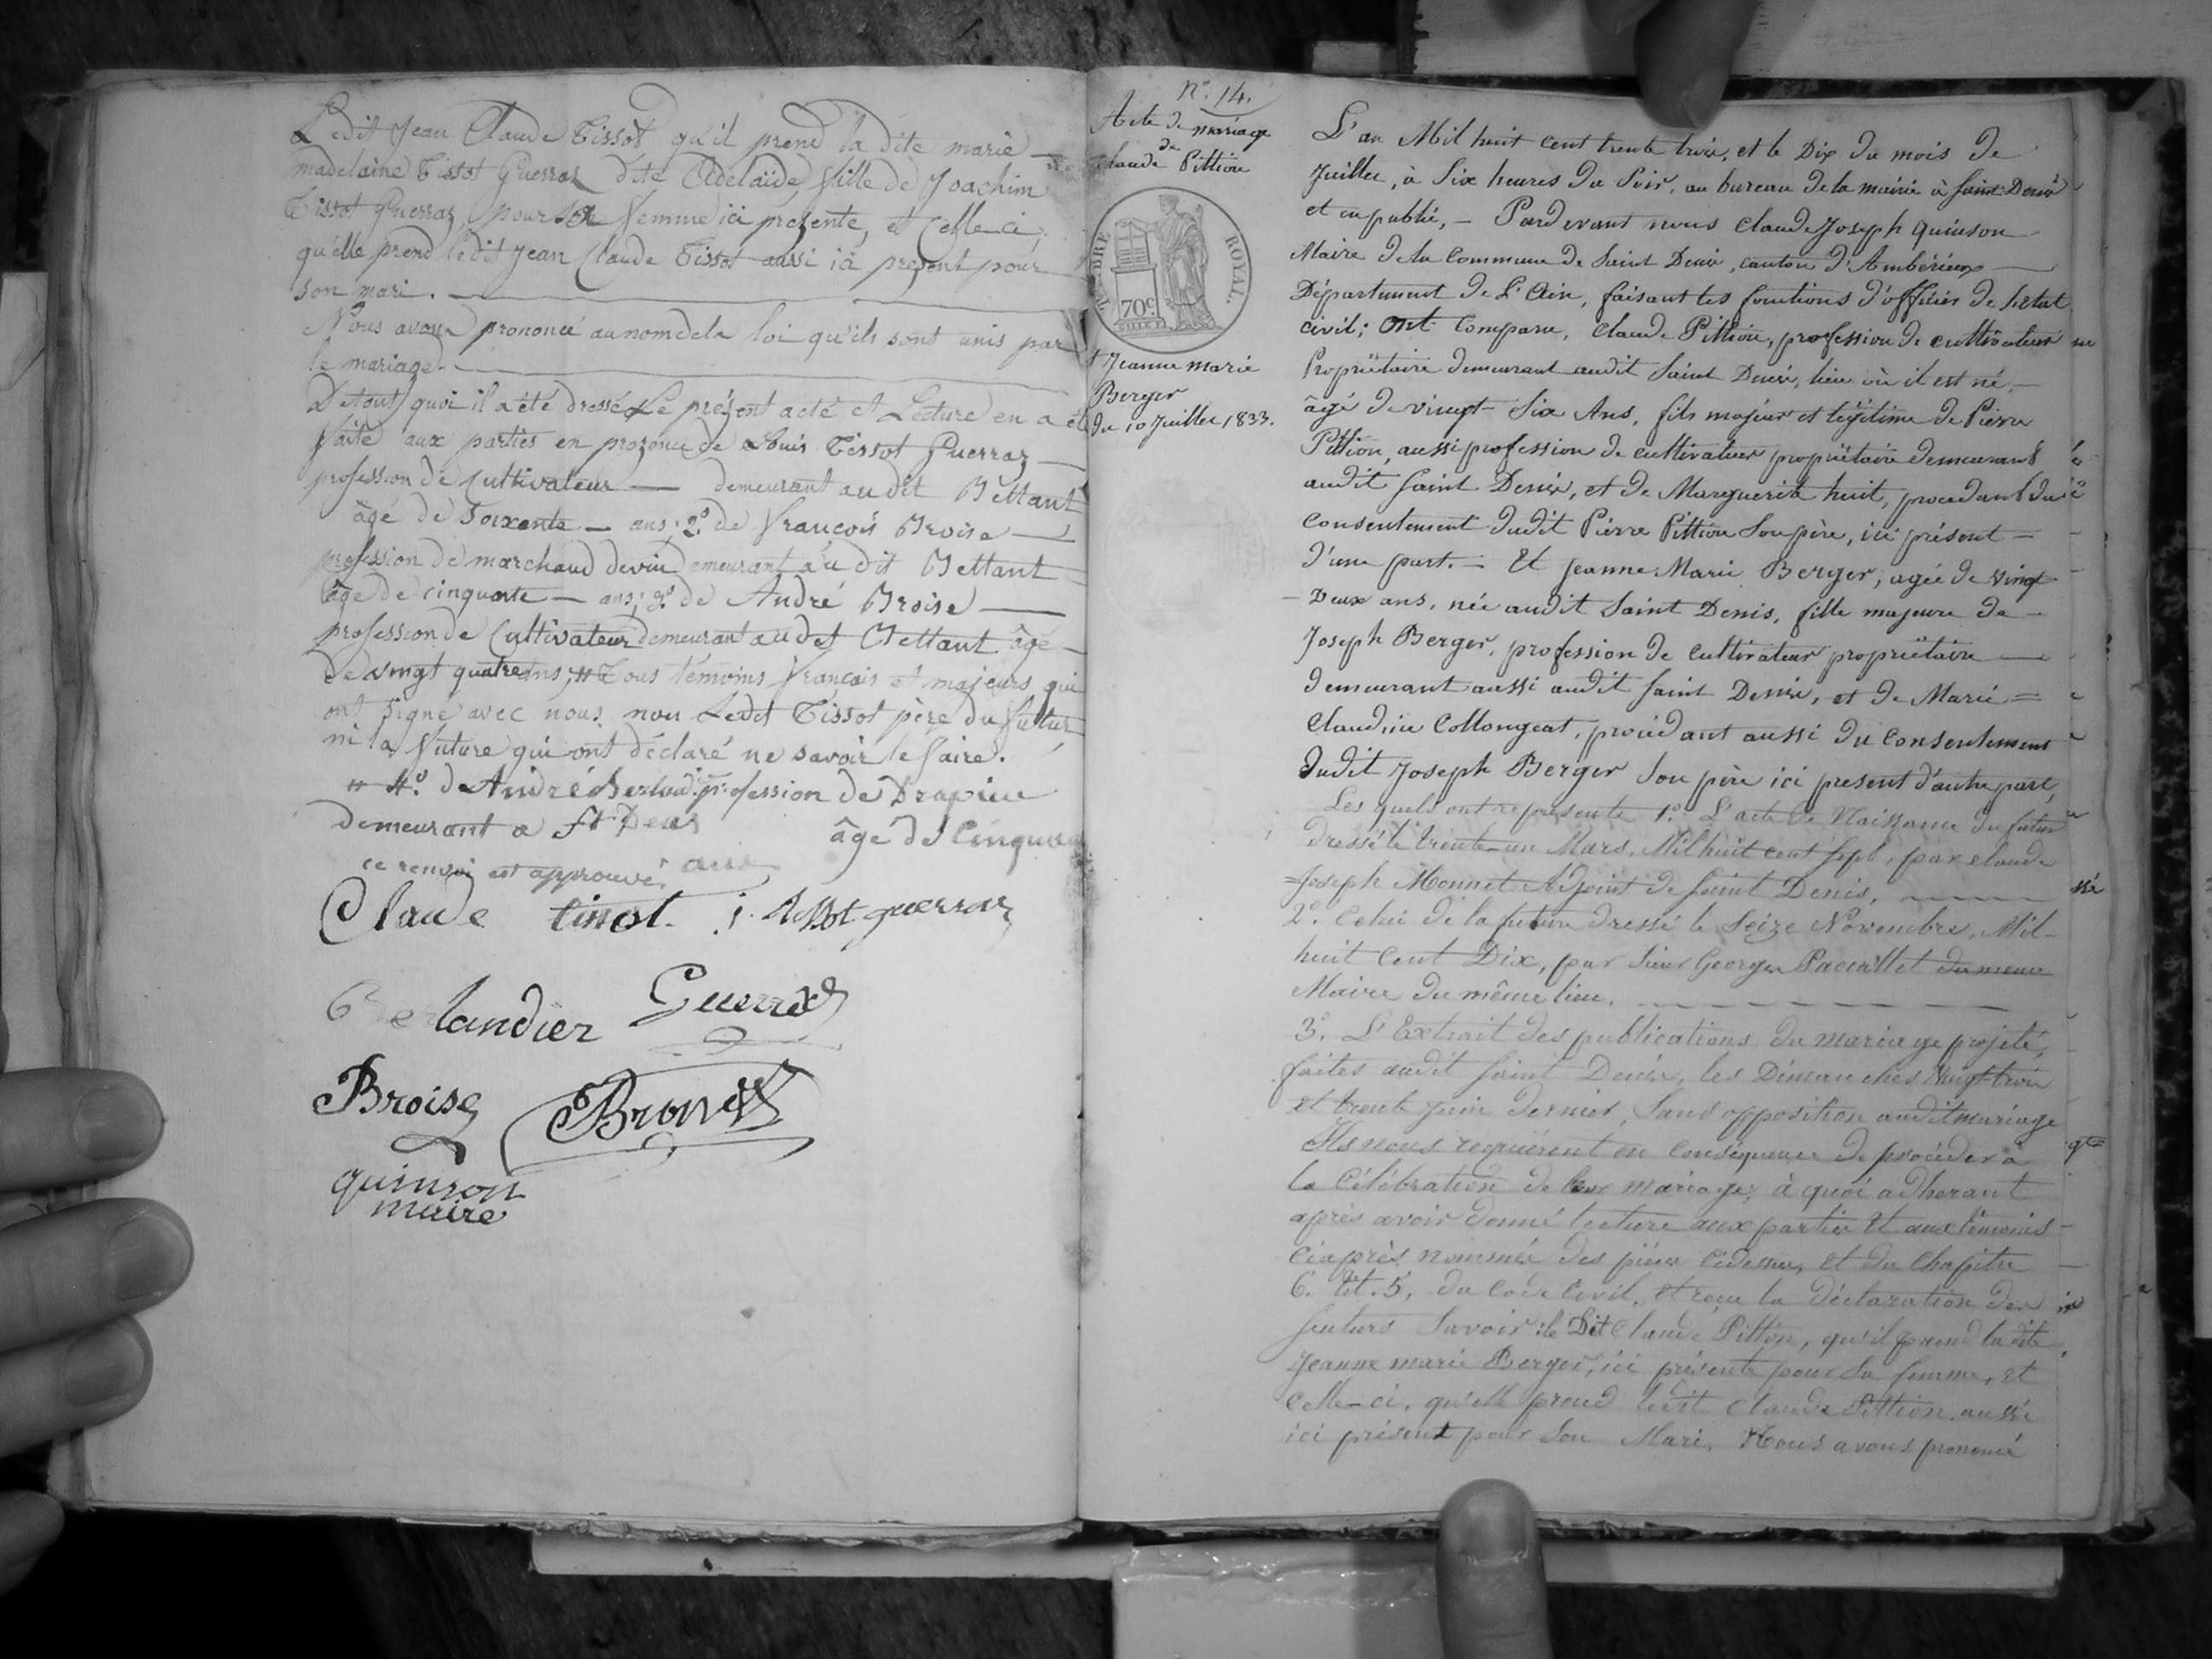 Ledit Jean Claude Tissot qu'il prend la dite marie
madelaine Tissot Guerraz dite Adelaïde, fille de Joachim
Tissot Guerraz pour sa femme ici presente, et Celle-ci,
qu'elle prend ledit Jean Claude Tissot aussi ici présent pour
son mari.
Nous avons prononcé au nom de la loi qu'ils sont unis par
le mariage.
De tout quoi il a été dressé Le présent acte et Lecture en a été
faite aux parties en prozence de Louis Tissot Guerraz
profession de Cultivateur — demeurant au dit Bettant
âgé de Soixante — ans; 2º de François Broise —
profession de marchand devin demeurant au dit Bettant
âge de cinquante — ans; 3º de André Broise —
profession de Cultivateur demeurant au dit Bettant âgé
de vingt quatre ans; # Tous témoins français et majeurs qui
ont signé avec nous non Ledit Tissot père du futur
ni la future qui ont déclaré ne savoir le faire.
# 4º de André profession de Drapier
demeurant a St Denis âgé de Cinquante
ce renvoi est approuvé. ans
Claude tissot. j. tissot guerraz
Berlandier Guerraz
Broise Broise
quinson
maire
Nº 14.
Acte de mariage
de
Claude Pittion
TIMBRE ROYAL.
70c
& Jeanne marie
Berger
du 10 Juillet 1833.
L'an Mil huit cent trente trois, et le Dix du mois de
Juillet, à Six heures du Soir, au bureau de la mairie à Saint Denis
et en public, — Pardevant nous Claude Joseph quinson
Maire de la Commune de Saint Denis, canton d'Ambérieux —
Département de L'Ain, faisant les fonctions d'officier de l'état
civil; Ont Comparu, Claude Pittion, profession de cultivateur
Propriétaire demeurant audit Saint Denis, lieu où il est né, —
âgé de vingt Six Ans, fils majeur et légitime de Pierre
Pittion, aussi profession de cultivateur propriétaire demeurant
audit Saint Denis, et de Marguerite huit, procedant du
Consentement dudit Pierre Pittion Son père, ici présent —
d'une part. — Et Jeanne Marie Berger, agée de vingt
— Deux ans, née audit Saint Denis, fille majeure de —
Joseph Berger, profession de cultivateur propriétaire —
demeurant aussi audit Saint Denis, et de Marie =
Claudine Collongeat, procedant aussi du Consentement
dudit Joseph Berger Son père ici present d'autre part,
Les quels ont représenté 1º L'acte de Naissance du futur
dressé le trente-un Mars, Mil huit cent sept, par Claude
=Joseph Monnet Adjoint de Saint Denis,
2º Celui de la future dressé le Seize Novembre, Mil-
huit Cent Dix, par Sieur George du meme
Maire du même lieu.
3º. L'Extrait des publications du mariage projeté,
faites audit Saint Denis, les Dimanches Vingt-trois
et trente Juin dernier, Sans opposition audit mariage
Ils nous requièrent en Conséquence de procéder à
la Célébration de leur mariage; à quoi adherant
après avoir donné lecture aux parties et aux témoins —
ciaprès nommés des pièces cidessus, et du Chapitre —
6. tit. 5, du Code Civil, et reçu la déclaration des
futurs Savoir: le Dit Claude Pittion, qu'il prend la dite
Jeanne marie Berger, ici présente pour Sa femme, et
Celle-ci, qu'elle prend ledit Claude Pittion aussi
ici présent pour Son Mari, Nous avons prononcé